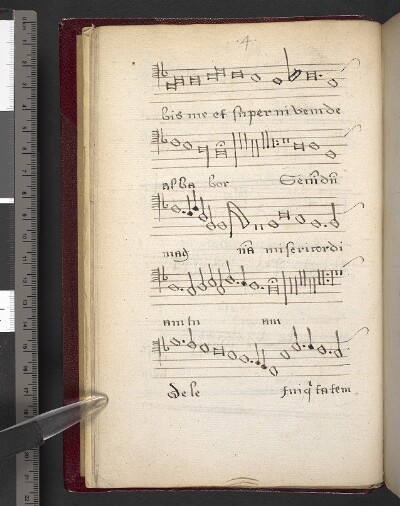 .4.
bis me et super nivem de
alba bor Secūdū
mag nā misericordi
am tu am
dele Iniqͥtatem